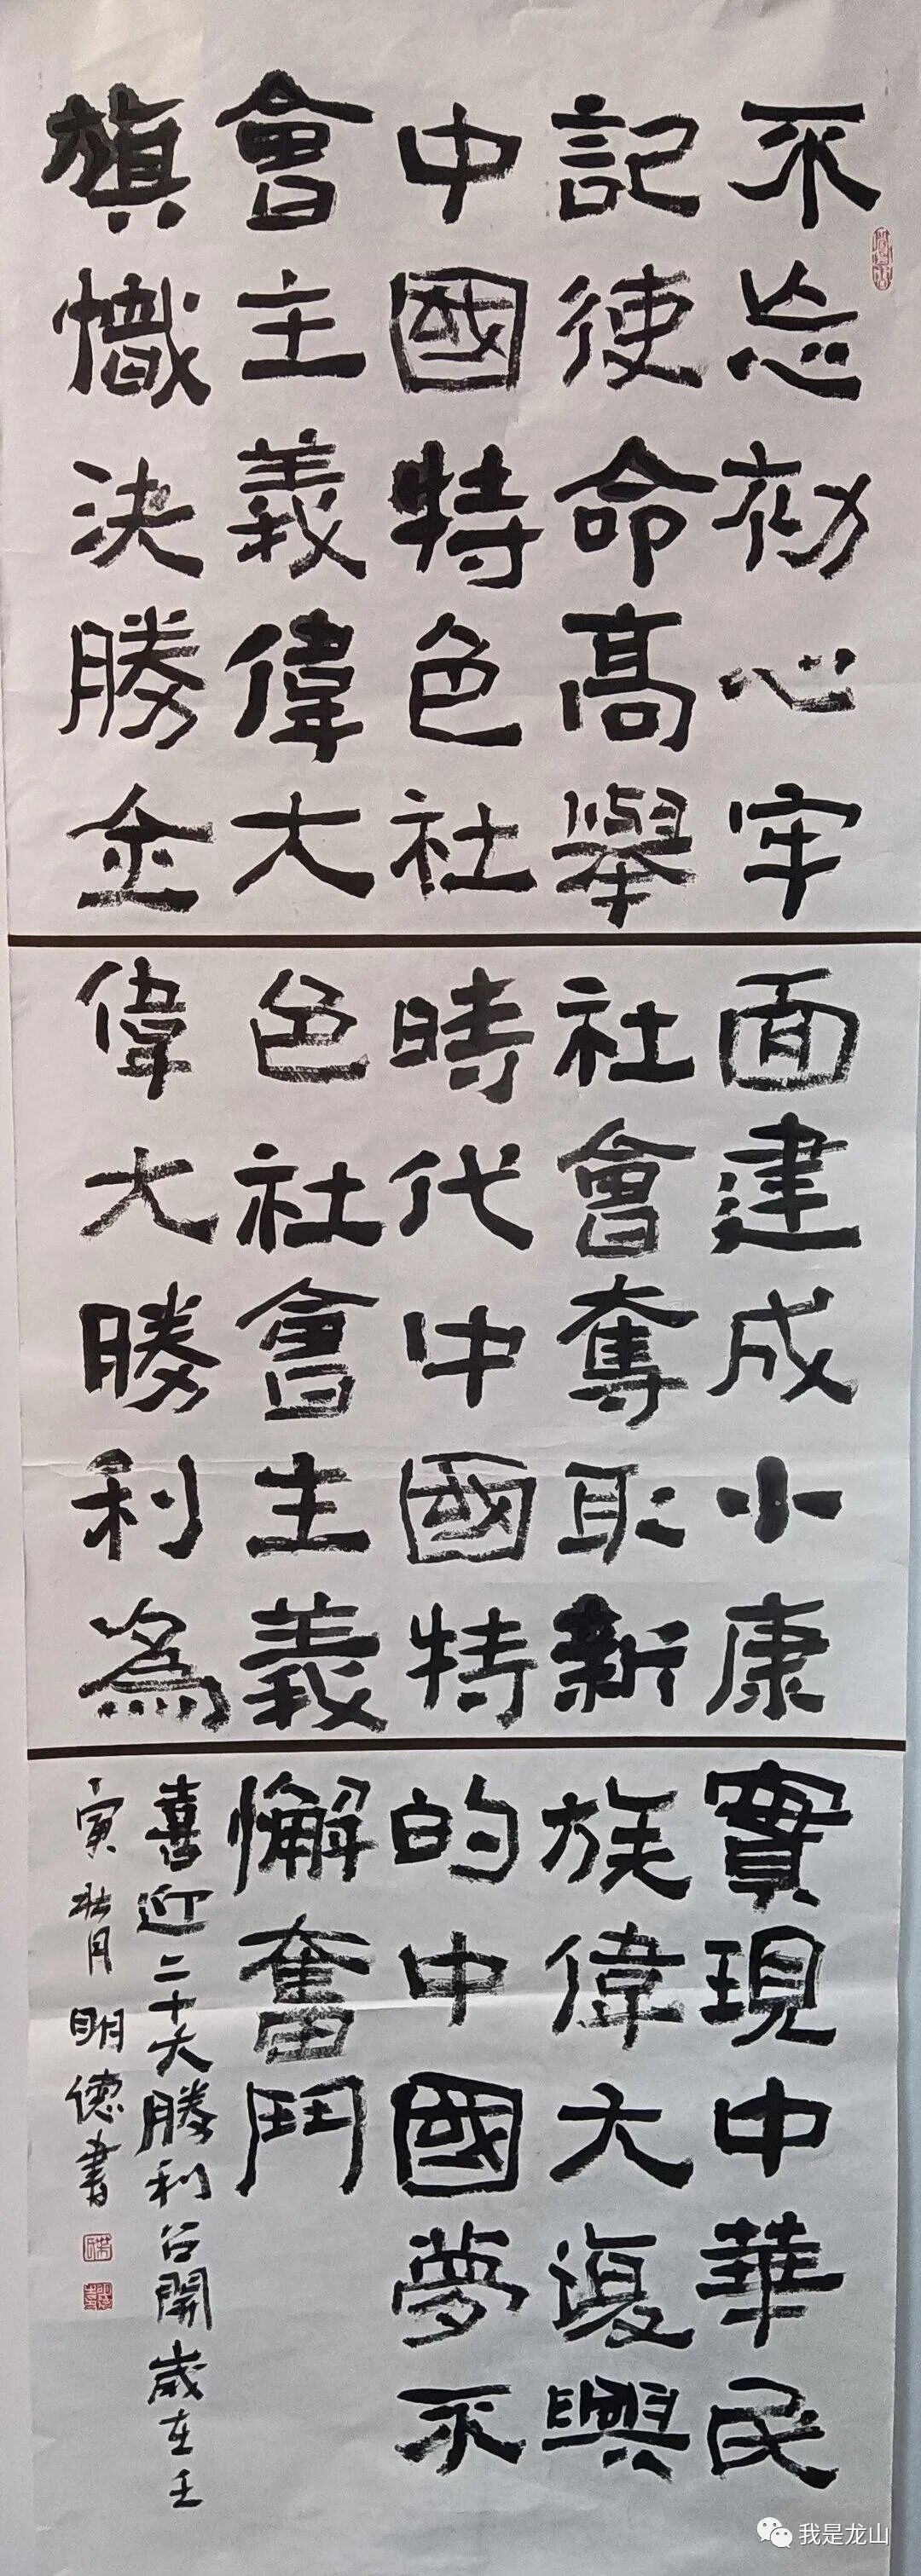 不忘初心牢
記使命高舉
中國特色社
會主義偉大
旗幟決勝全
面建成小康
社會奪取新
時代中國特
色社會主義
偉大勝利為
實現中華民
族偉大復興
的中國夢不
懈奮鬥
喜迎二十大勝利召開歲在壬
寅 月明德書
我是龙山